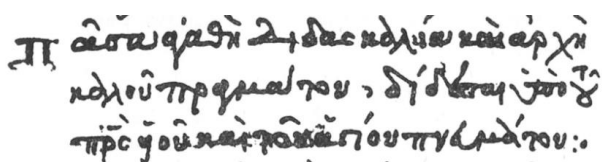 Πᾶσα ἀγαθὴ διδασκαλία καὶ ἀρχὴ
καλοῦ πραγμάτου, δίδεται ὑπὸ τοῦ
πρ̅ς ὑοῦ καὶ τοῦ ἁγίου πνευμάτου:·